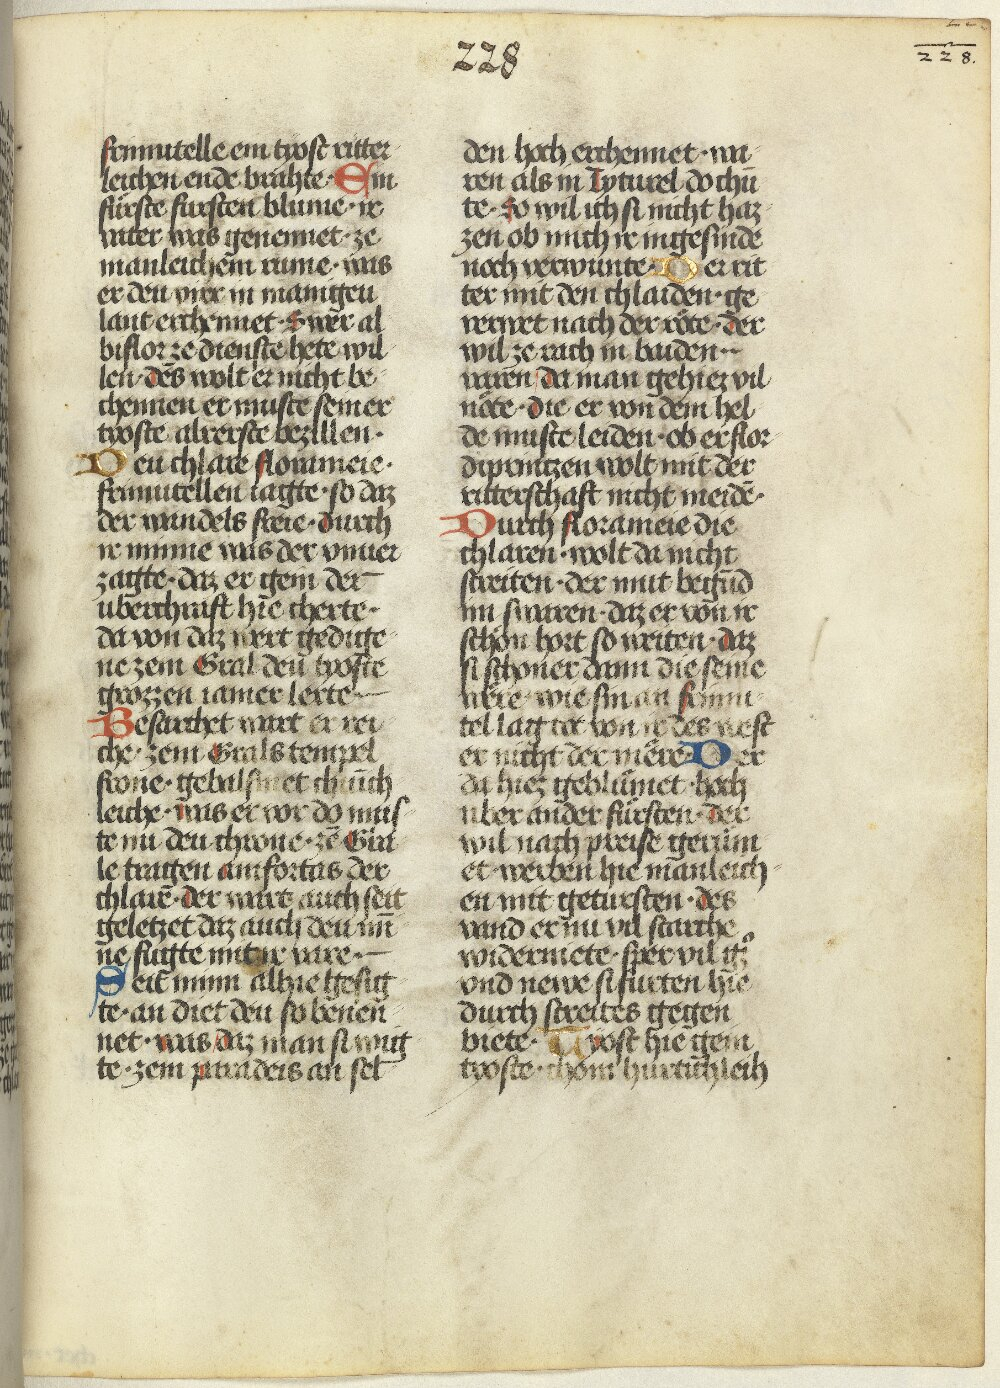 228
228.
frimutelle ein tyost ritter
leichen ende brahte · Ein
fürste fursten blume · ir
vater was genennet · ze
manleichem rume · was
er den vier in manigen
lant erchennet · Swer al
biflor ze dienste hete wil
len · des wolt er nicht be
chennen er muste seiner
tyoste alrerste bezillen ·
Deu chlare florameie ·
frimutellen iagte · so daz
der wandels freie · durch
ir minne was der vnuer
zagte · daz er gein der
uberchraft hie cherte ·
da von daz wert gedige
ne zem Gral den tyoste
grozzen iamer lerte
Besarchet wart er rei
che · zem Grals tempel
frone · gebalsmet chünch
leiche · was er vor do mus
te nu den chrone · ze Gra
le tragen amfortas der
chlare · der wart auch seit
geletzet daz auch deu min
ne fugte mit ir vare ·
Seit minn alhie gesig
te · an diet den so benen
net · was daz man si wig
te · zem paradeis an sel
den hoch erchennet · wa
ren als in Tyturel do chu
te · So wil ich si nicht haz
zen ob mich ir ingesinde
noch verwunte · Der rit
ter mit den chlaiden · ge
verwet nach der röte · der
wil ze rach in baiden
varen da man gehiez vil
nöte · die er von dem hel
de muste leiden · ob er flor
diprintzen wolt mit der
ritterschaft nicht meide ·
Durch florameie die
chlaren · wolt da nicht
streiten · der mut begund
im swaren · daz er von ir
schön hort so weiten · daz
si schoner dann die seine
were · wie sin an frimu
tel lag tot von ir des west
er nicht der mere · Der
da hiez geblümet · hoch
uber ander fürsten · der
wil nach preise gerüm
et · werben hie manleich
en mit getursten · des
vand er nu vil starche
widermete · sper vil
vnd newe si fürten hie
durch streites gegen
biete · Tyost hie gein
tyoste · chom hurtichleich